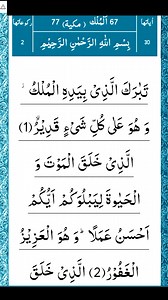 آیاتها 67 اَلْمُلْك (مکیة) 77 رکوعاتها
30 بِسْمِ اللّٰهِ الرَّحْمٰنِ الرَّحِيْمِ 2
تَبٰرَكَ الَّذِىْ بِيَدِهِ الْمُلْكُ ۚ
وَ هُوَ عَلٰى كُلِّ شَىْءٍ قَدِيْرُ ۨ (1)
الَّذِىْ خَلَقَ الْمَوْتَ وَ
الْحَيٰوةَ لِيَبْلُوَكُمْ اَيُّكُمْ
اَحْسَنُ عَمَلًا ؕ وَ هُوَ الْعَزِيْزُ
الْغَفُوْرُ (2) الَّذِىْ خَلَقَ